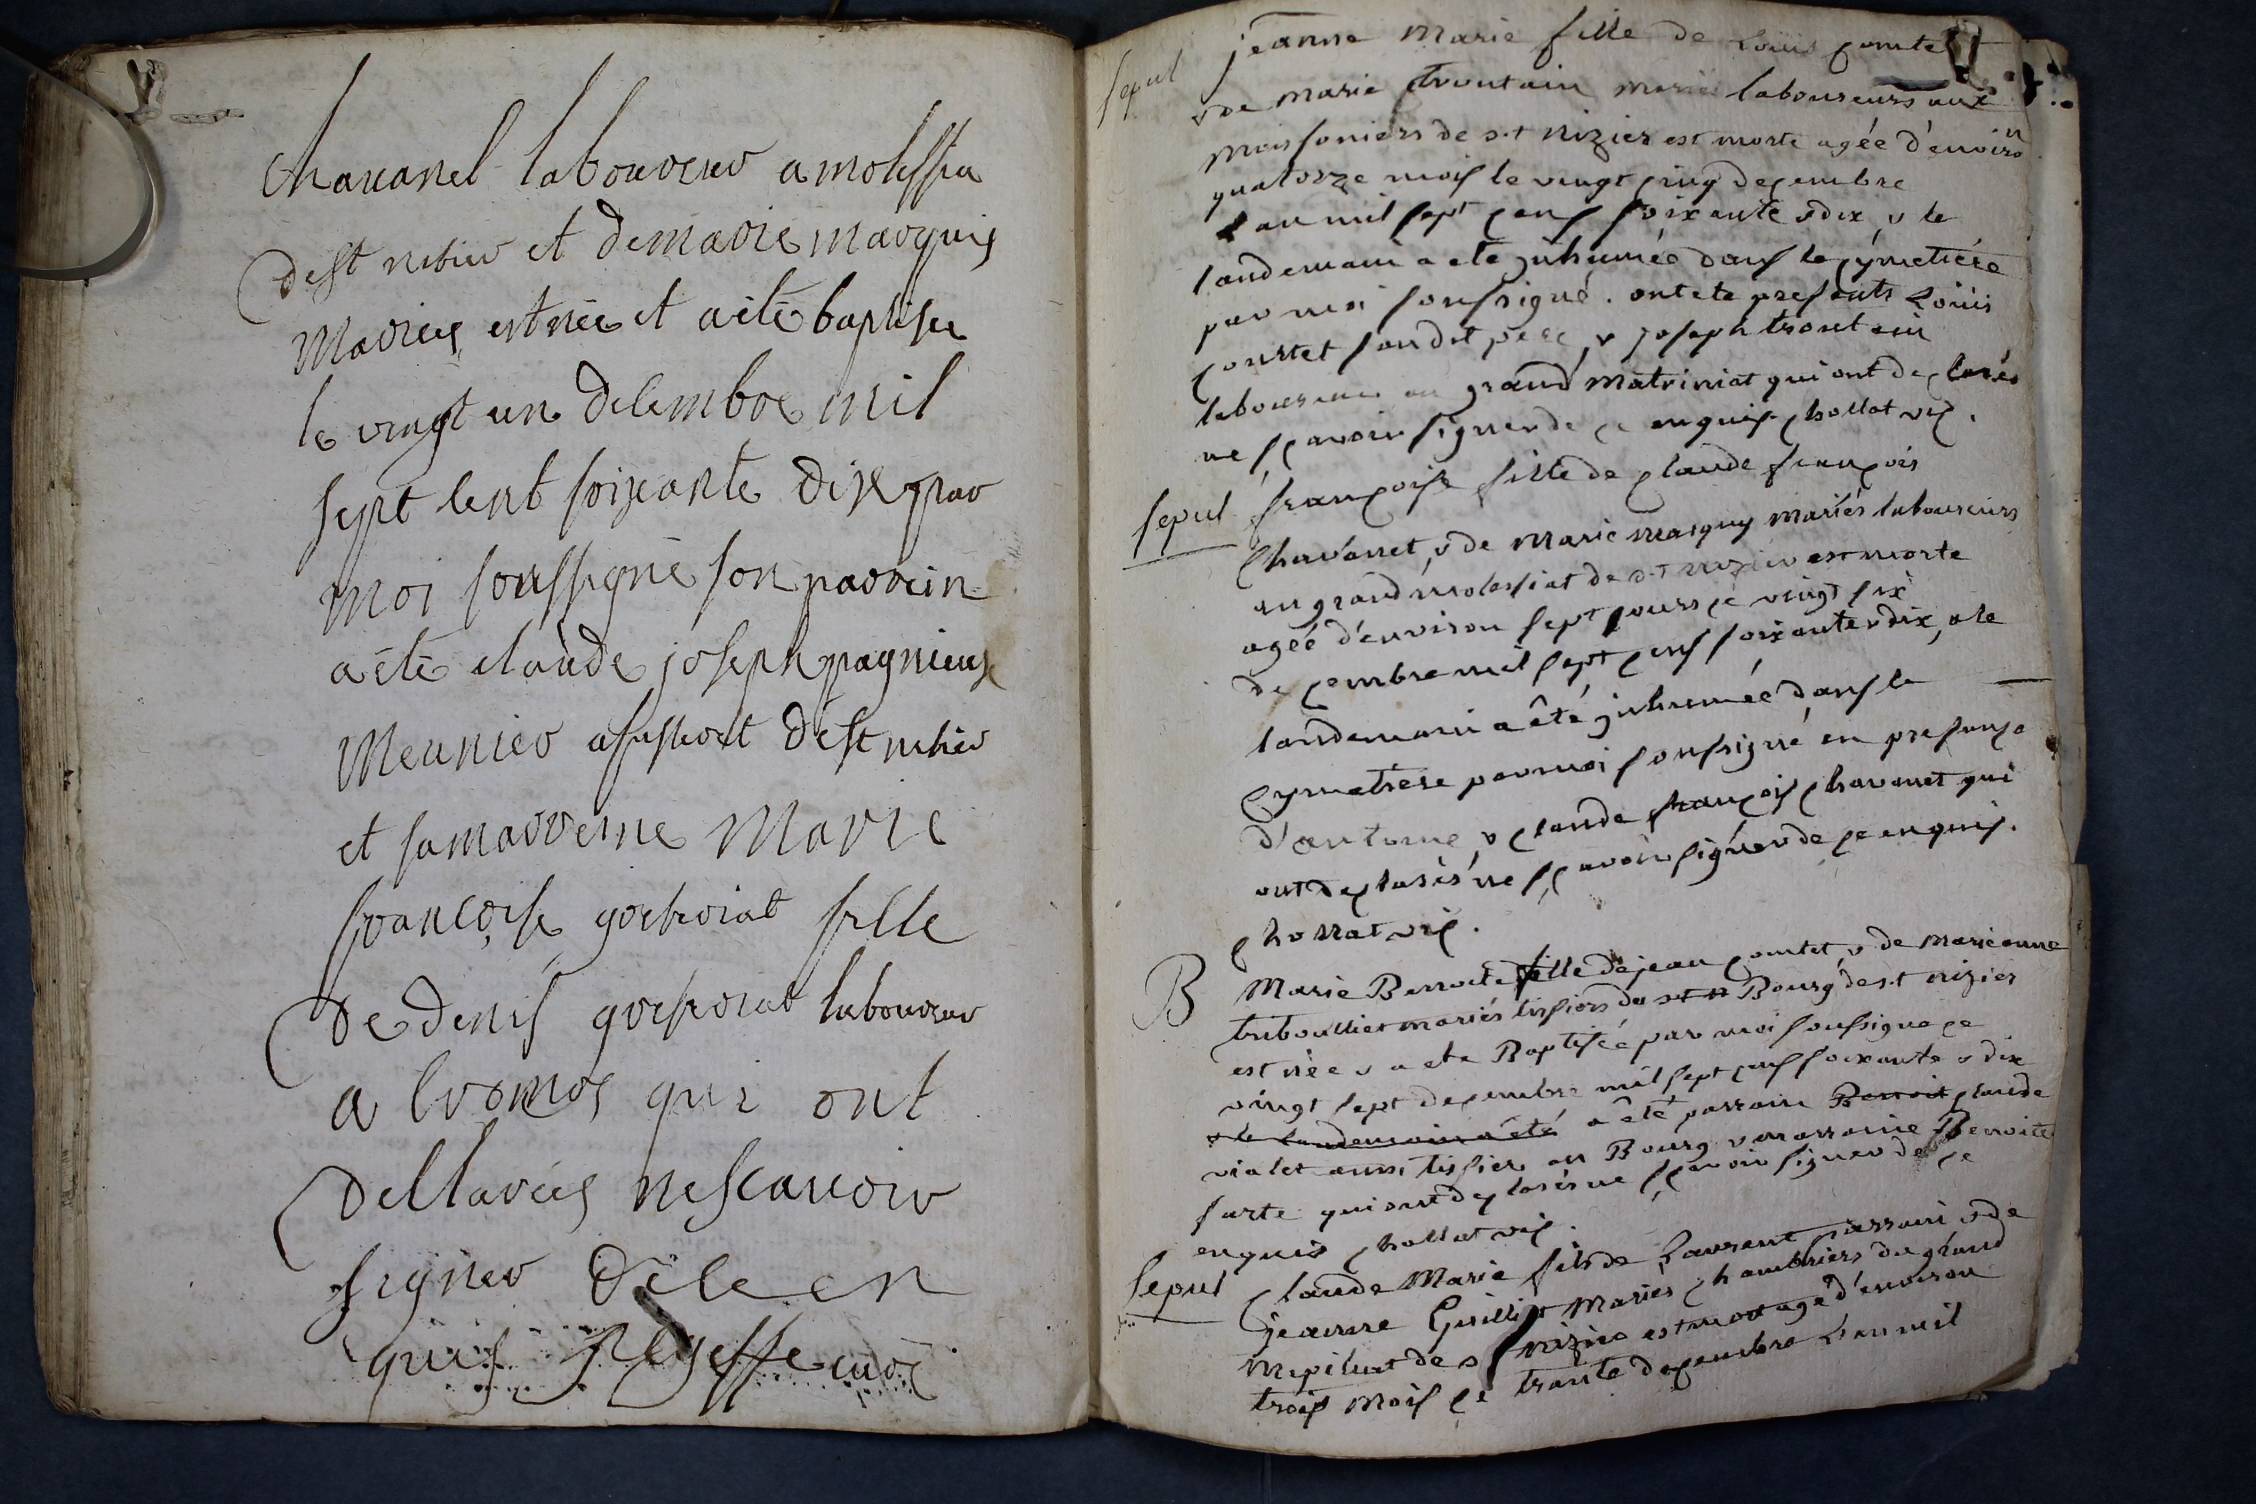 chavanel laboureur a molissia
de st nisier et de marie marquis
Mariés est née et a été baptisée
le vingt un decembre mil
sept cent soixante dix par
moi soussigné son parrein
a été claude joseph pagnieux
Meunier a st nisier
et sa marreine Marie
francoise gorfroiat fille
de denis gorfroiat laboureur
a cromos qui ont
declarés ne scavoir
signer de ce en
quis
sepul jeanne Marie fille de Louis comtet
v de Marie troutain Mariés laboureurs aux
moissoniers de s.t nizier est morte agée d'environ
quatorze mois le vingt cinq decembre
l'an mil sept cens soixante v dix, v le
landemain a eté inhumée dans le cymetiére
par moi soussigné. ont eté presents Loüis
comtet son dit pere, v joseph troutain
laboureur au grand Matriniat qui ont declarés
ne sçavoir signer de ce enquis chollat vic.
sepul francoise fille de claude françois
Chavanet, v de Marie marquis mariés laboureurs
au grand molessiat de s.t nizier est morte
agée d'environ sept jours ce vingt six
decembre mil sept cens soixante v dix, v le
landemain a été inhumée dans le
cymetiere par moi soussigné en presence
d'antoine v claude françois chavanet qui
ont declarés ne sçavoir signer de ce enquis.
chollat vic.
B Marie Benoite fille de jean comtet, v de Marie anne
triboullier mariés tissiers du st n Bourg de s.t nizier
est née v a eté Baptisée par moi soussigné ce
vingt sept decembre mil sept cens soixante v dix
v le landemain a été a été parrain Benoit claude
vialet aussi tissier au Bourg v marraine Benoite
farte qui ont declarés ne sçavoir signer de ce
enquis chollat vic.
sepul claude Marie fils de Laurent perrain v de
jeanne Guillot Mariés chambriers du grand
Mepiliat de s nizier est mort agé d'environ
trois mois ce trante decembre l'an mil